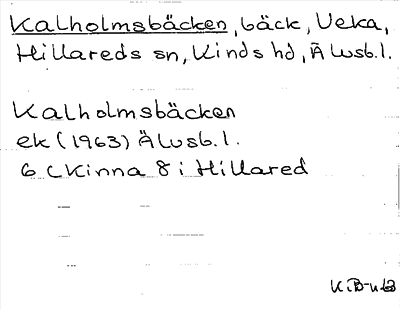 Kalholmsbäcken, bäck, Veka,
Hillareds sn, Kinds hd, Älvsb.l.
Kalholmsbäcken
ek (1963) Älvsb.l.
6 C Kinna 8 i Hillared